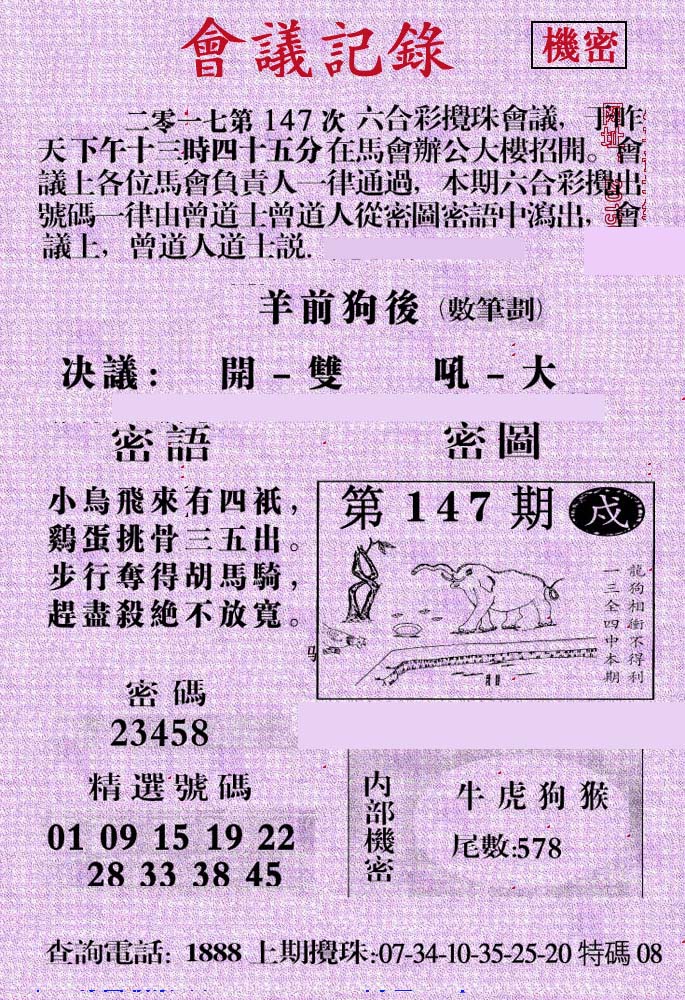 會議記錄
機密
二零一七第147次 六合彩攪珠會議, 于昨
天下午十三時四十五分在馬會辦公大樓招開。會
議上各位馬會負責人一律通過, 本期六合彩攪出
號碼一律由曾道士曾道人從密圖密語中瀉出, 會
議上, 曾道人道士説.
羊前狗後 (數筆劃)
决議: 開-雙 吼-大
密語
小鳥飛來有四祇,
鷄蛋挑骨三五出。
步行奪得胡馬騎,
趕盡殺絶不放寬。
密圖
第147期 戍
龍狗相衝不得利
一三全四中本期
密碼
23458
精選號碼
01 09 15 19 22
28 33 38 45
内部機密
牛虎狗猴
尾數:578
查詢電話: 1888 上期攪珠:07-34-10-35-25-20 特碼 08